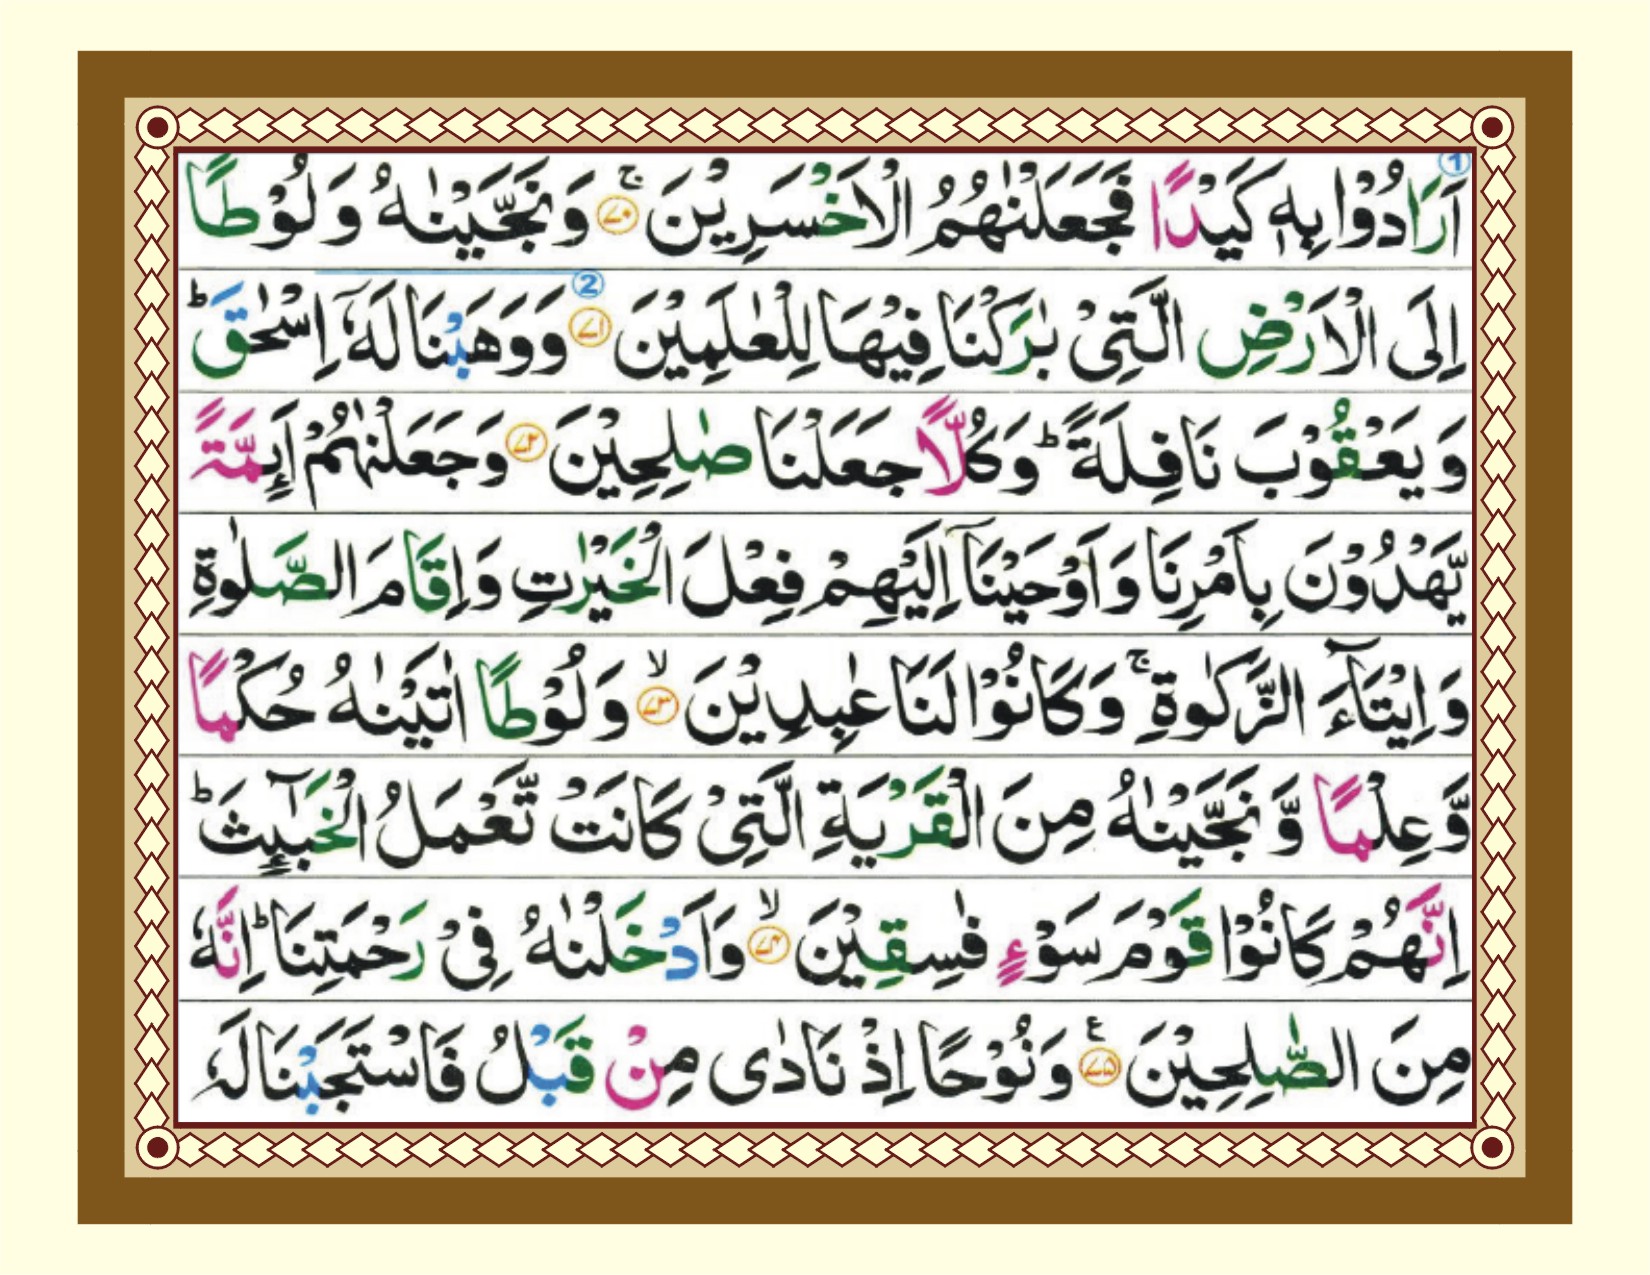 ①
اَرَادُوْا بِهٖ كَيْدًا فَجَعَلْنٰهُمُ الْاَخْسَرِيْنَ ۚ‏﴿۷۰﴾ وَ نَجَّيْنٰهُ وَ لُوْطًا
اِلَى الْاَرْضِ الَّتِىْ بٰرَكْنَا فِيْهَا لِلْعٰلَمِيْنَ ﴿۷۱﴾ ② وَ وَهَبْنَا لَهٗۤ اِسْحٰقَ ؕ
وَ يَعْقُوْبَ نَافِلَةً ؕ وَ كُلًّا جَعَلْنَا صٰلِحِيْنَ ﴿۷۲﴾ وَ جَعَلْنٰهُمْ اَىِٕمَّةً
يَّهْدُوْنَ بِاَمْرِنَا وَ اَوْحَيْنَاۤ اِلَيْهِمْ فِعْلَ الْخَيْرٰتِ وَ اِقَامَ الصَّلٰوةِ
وَ اِيْتَآءَ الزَّكٰوةِ ۚ وَ كَانُوْا لَنَا عٰبِدِيْنَ ۙ﴿۷۳﴾ وَ لُوْطًا اٰتَيْنٰهُ حُكْمًا
وَّ عِلْمًا وَّ نَجَّيْنٰهُ مِنَ الْقَرْيَةِ الَّتِىْ كَانَتْ تَّعْمَلُ الْخَبٰٓىِٕثَ ؕ
اِنَّهُمْ كَانُوْا قَوْمَ سَوْءٍ فٰسِقِيْنَ ۙ﴿۷۴﴾ وَ اَدْخَلْنٰهُ فِىْ رَحْمَتِنَا ؕ اِنَّهٗ
مِنَ الصّٰلِحِيْنَ ﴿۷۵﴾ ع وَ نُوْحًا اِذْ نَادٰى مِنْ قَبْلُ فَاسْتَجَبْنَا لَهٗ